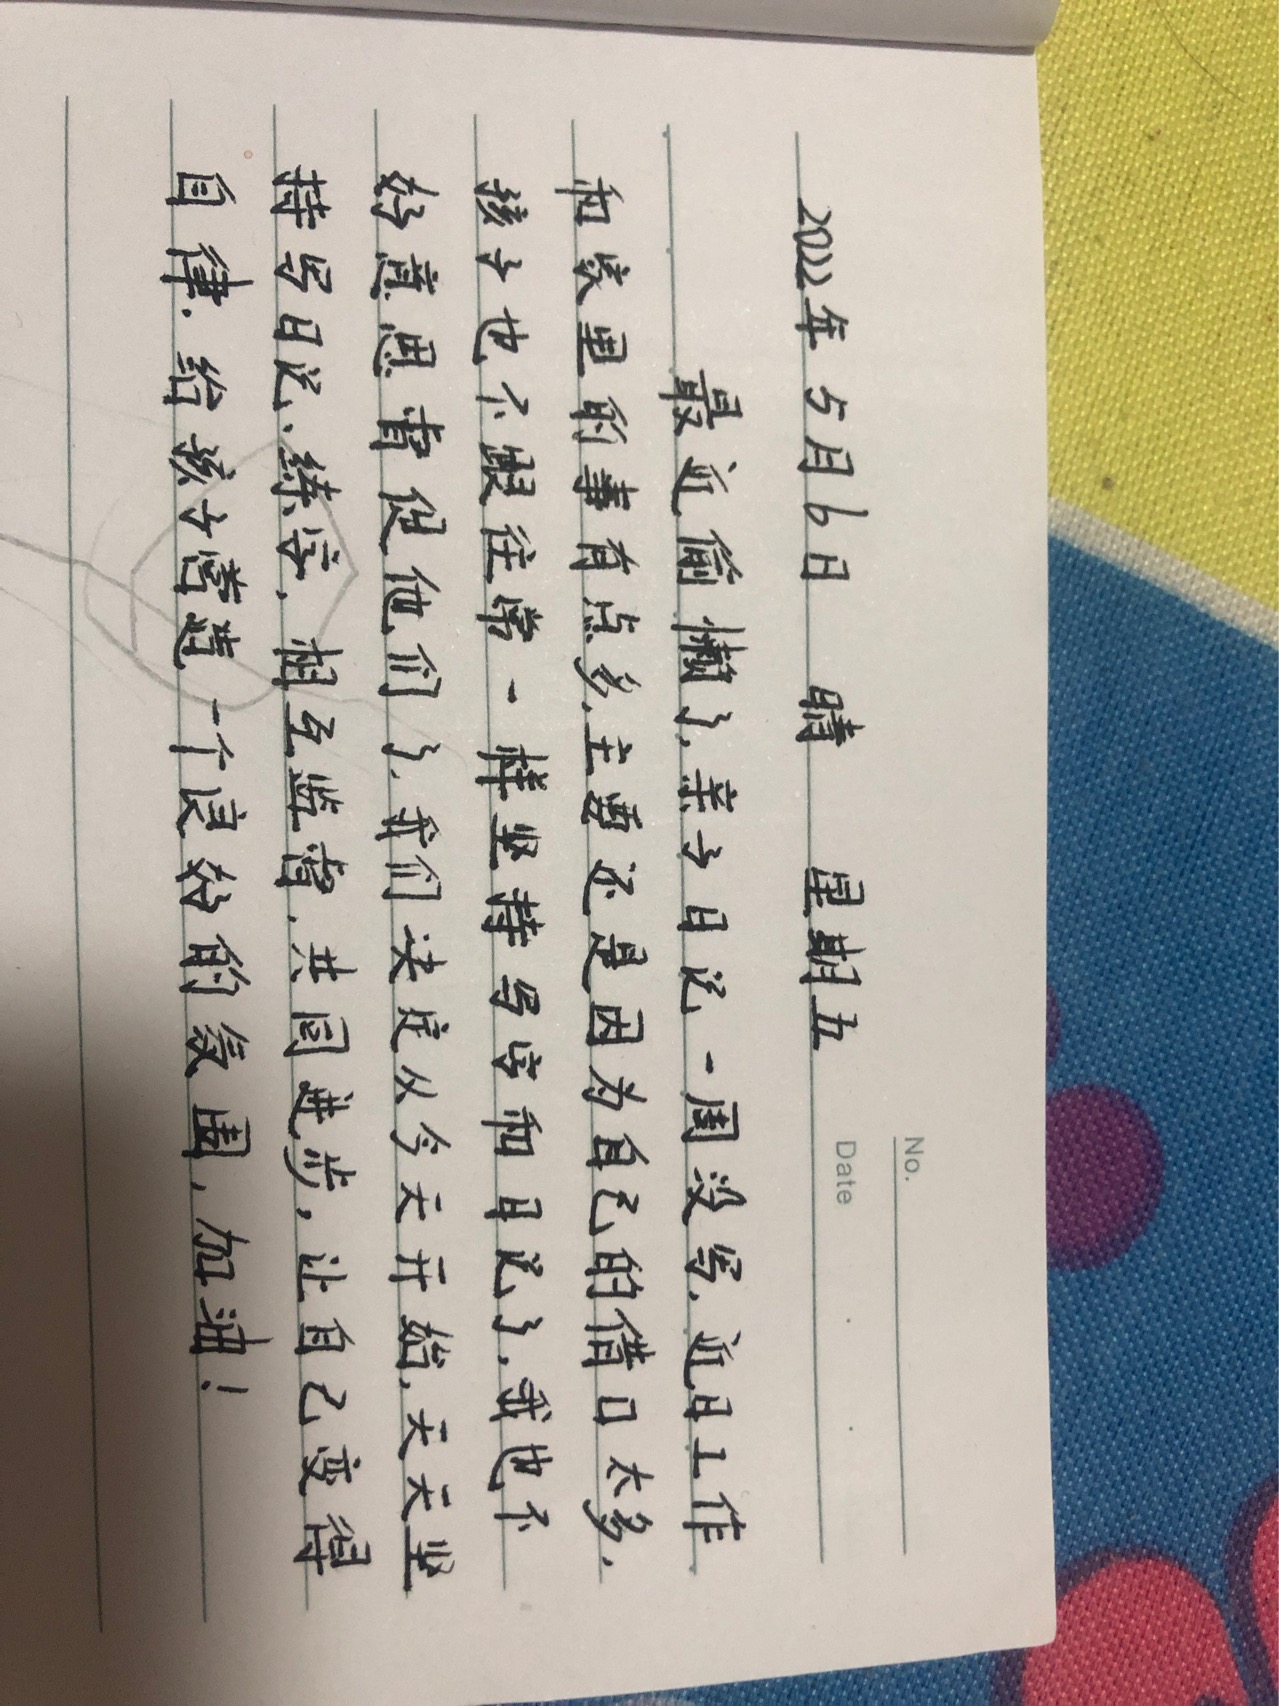 No.
Date
2022年5月6日 晴 星期五
最近偷懒了，亲子日记一周没写，近日工作
和家里的事有点多，主要还是因为自己的借口太多，
孩子也不跟往常一样坚持写字和日记了，我也不
好意思督促他们了，我们决定从今天开始，天天坚
持写日记、练字，相互监督，共同进步，让自己变得
自律，给孩子营造一个良好的氛围，加油！